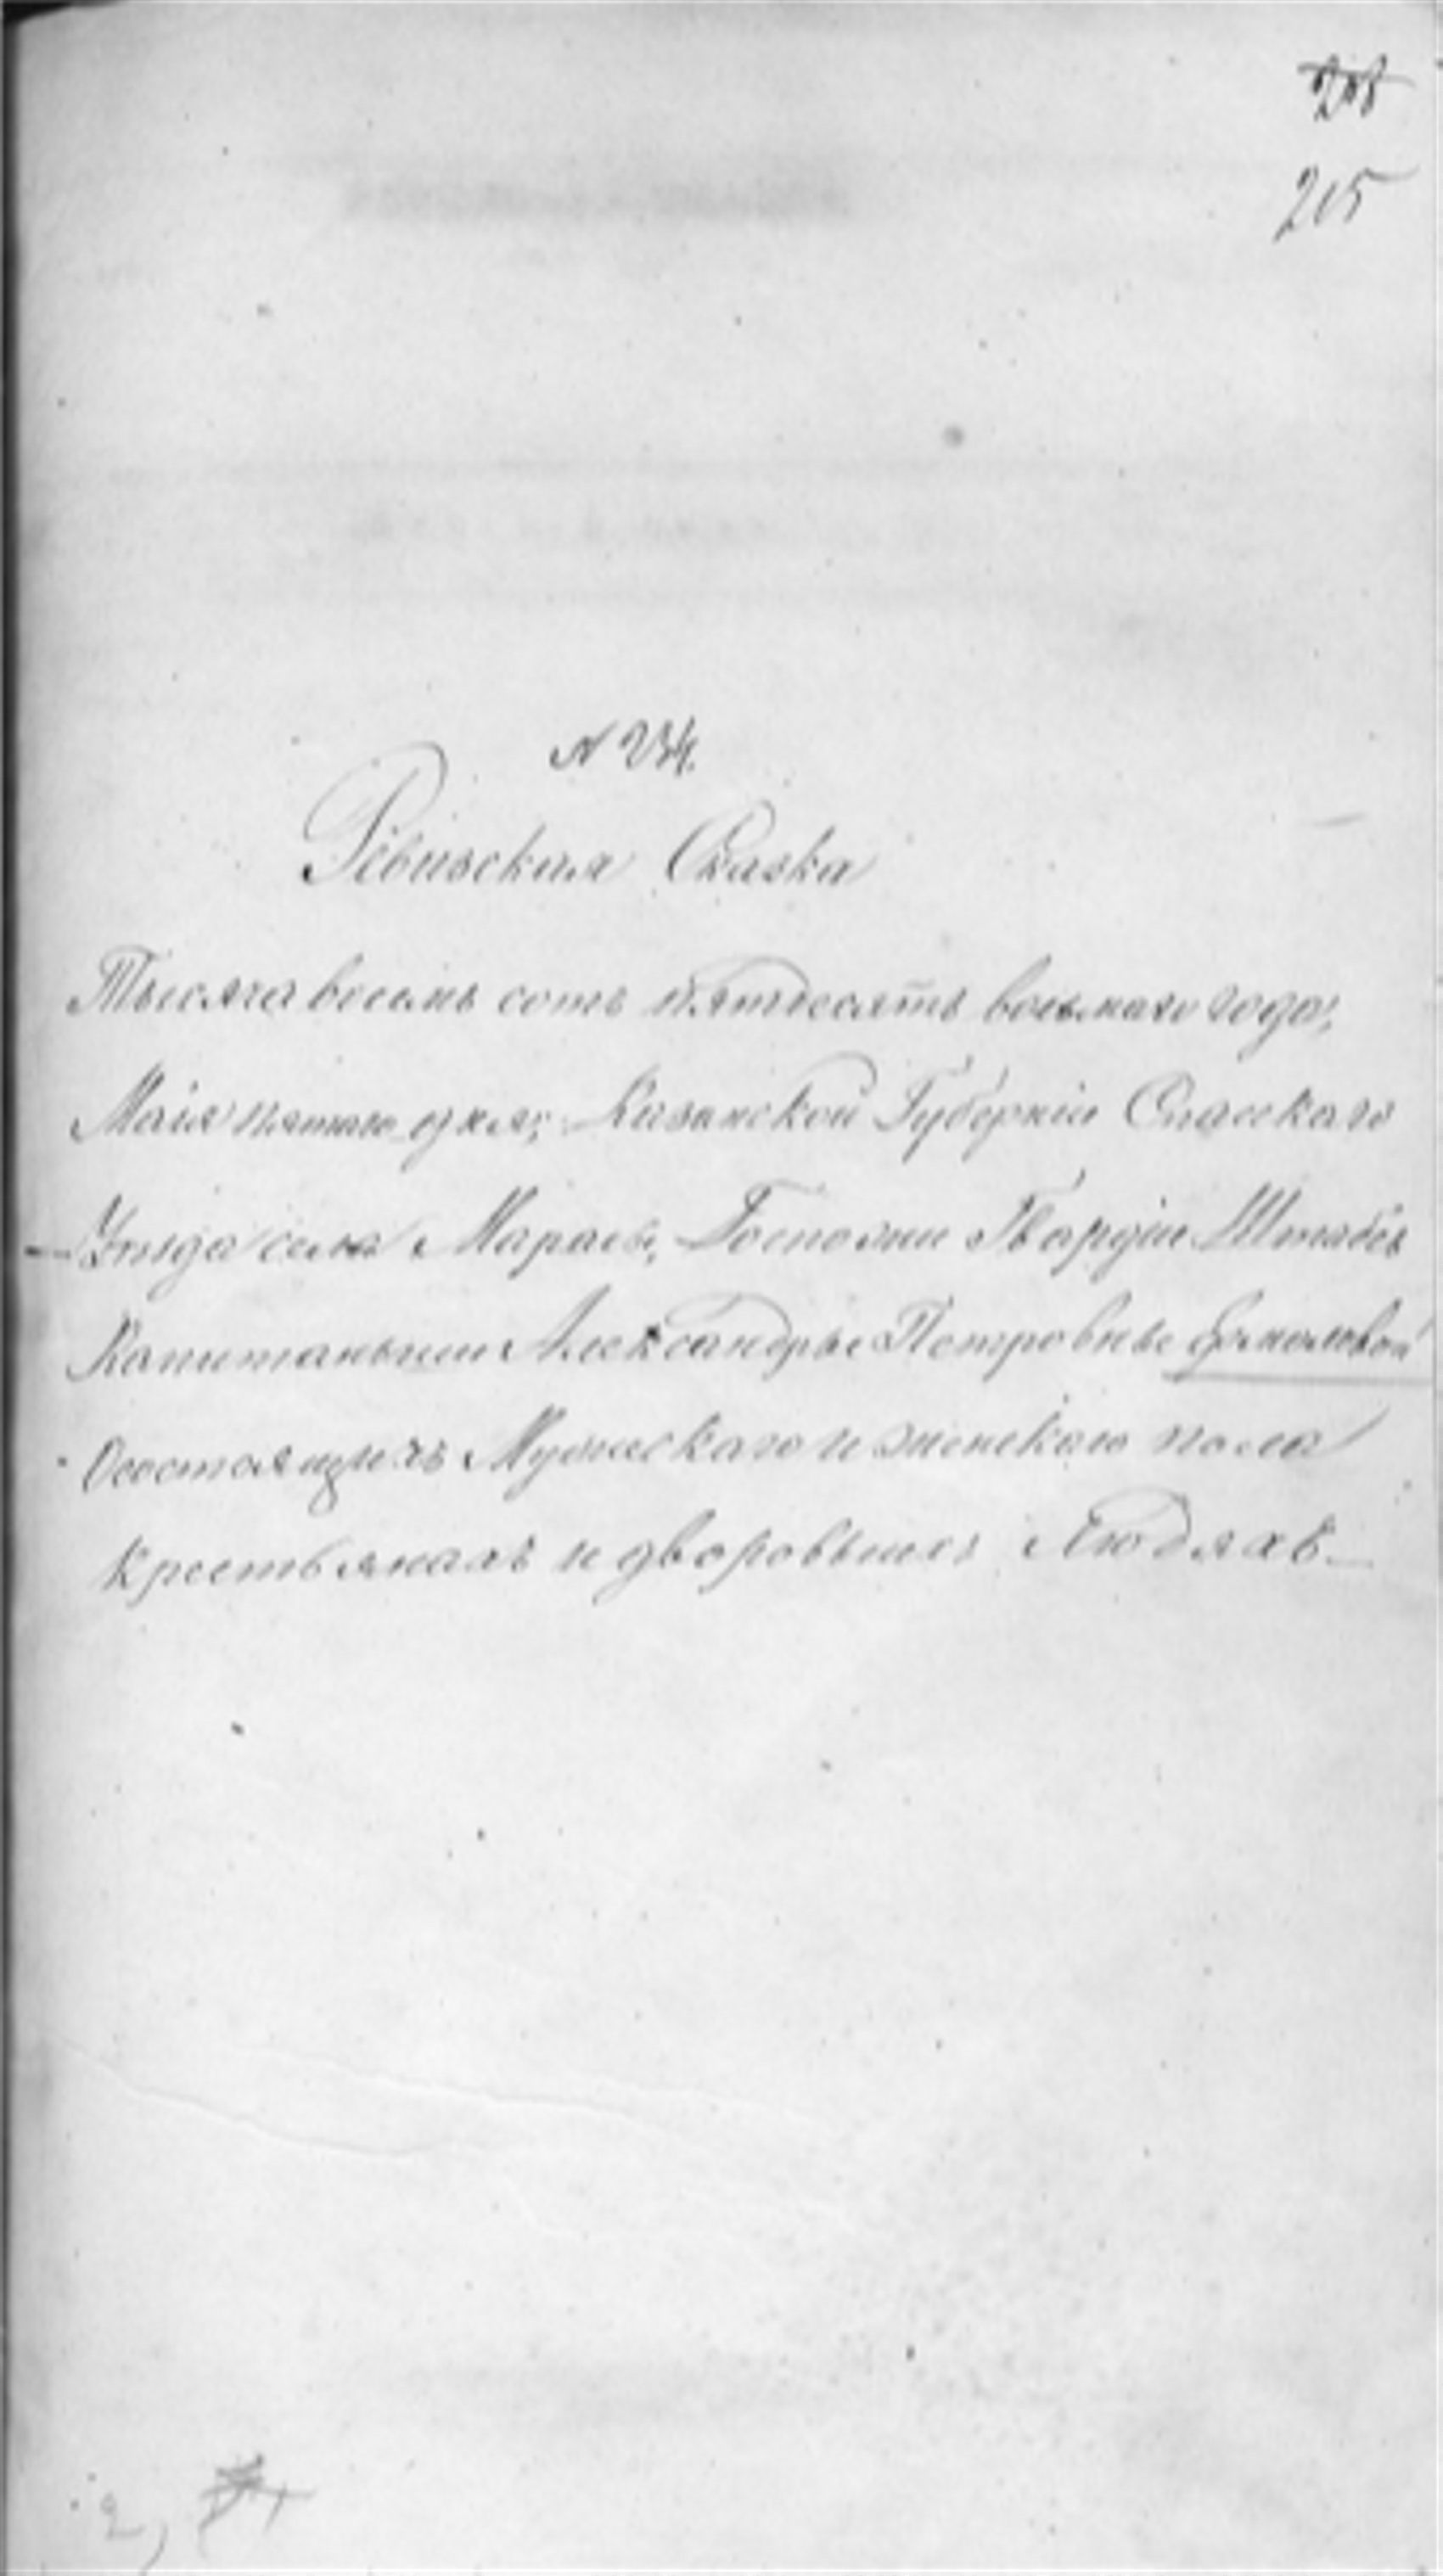 215
N 234.
Ревизская Сказка
Тысяча восемь сотъ пятдесятъ восьмаго года,
Маія пятаго дня, Казанской Губерніи Спасскаго
Уѣзда села Марасы, Госпожи Гвардіи Штабсъ
Капитанши Александры Петровны Ермоловой
О состоящихъ Мужескаго и женскаго пола
крестьянахъ и дворовыхъ Людяхъ
2,